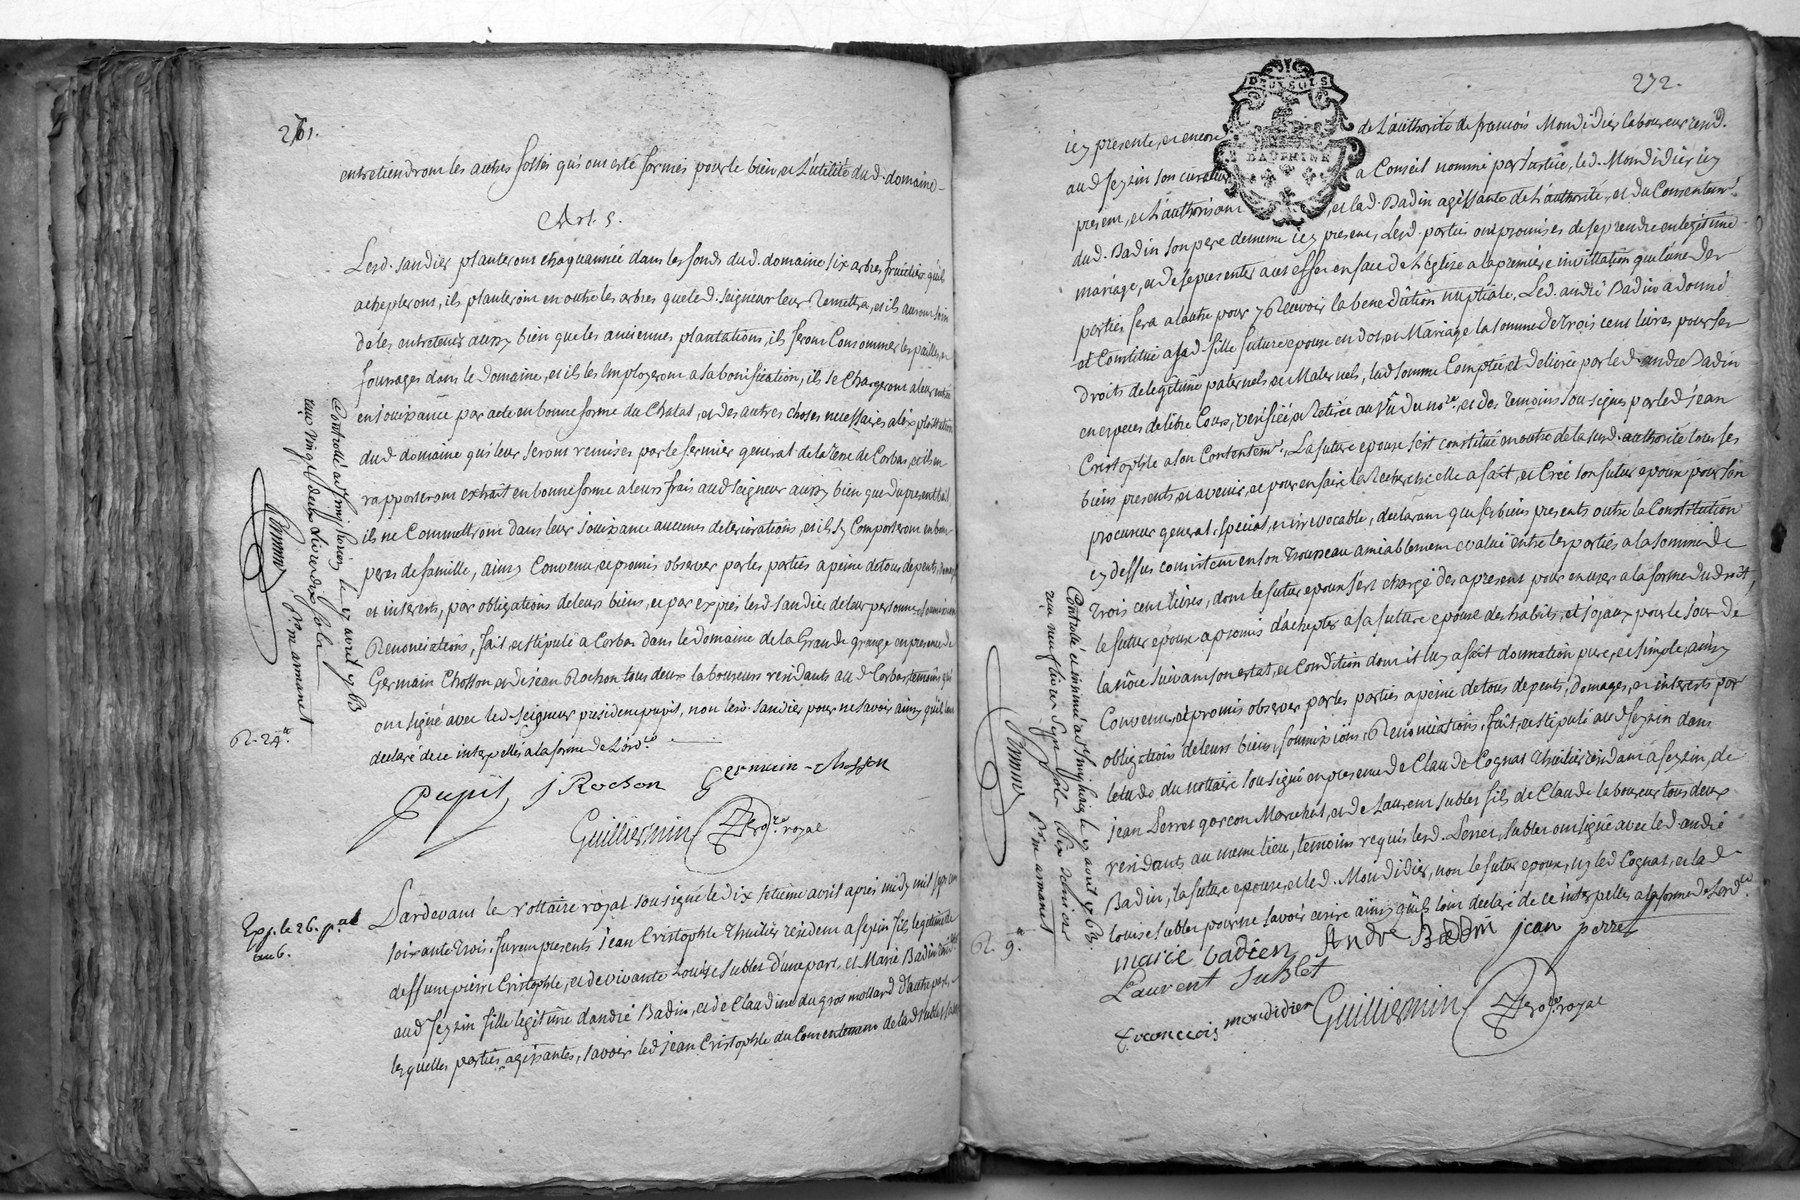 271.
entretiendront les autres fossés qui ont esté formés pour le bien et L'utilité du d. domaine
Art. 5.
Les d. sandier planteront chaque année dans les fonds du d. domaine six arbres fruitiers qu'ils
achepteront, ils planteront en outre les arbres que le d. seigneur leur Remettra, et ils auront soin
de les entretenir aussy bien que les anciennes plantations, ils feront Consommer les pailles, et
fourages dans le Domaine, et ils les Employeront a sa bonification, ils se Chargeront a leur entrée
en jouissance par acte en bonne forme du Chatal, et des autres choses necessaires a l'exploitation
du d. domaine qui leur seront remises par le fermier general de la terre de Corbas, et ils en
rapporteront extrait en bonne forme a leurs frais au d. seigneur aussy bien que du present bail
ils ne Commettront dans leur jouissance aucunes deteriorations, et ils sy Comporteront en bons
peres de famille, ainsy Convenu, et promis observer par les parties a peine de tous depents, dommages
et interests, par obligations de leurs biens, et par exprés les d. sandier de leur personne, soumissions
Renonciations, fait, et stipulé a Corbas dans le Domaine de la Grande grange en presence de
Germain Chosson et de jean Rochon tous deux laboureurs residants au d. Corbas temoins qui
ont signé avec le d. seigneur president pupil, non les d. sandier pour ne savoir ainsy qu'ils l'ont
declaré de ce interpellés a la forme de L'ord.ce
Pupil, J Rochon Germain Chosson
Guilliermin No.re royal
Controllé a St simphorien le 27 avril 1763
R. 24 #
Exp. le 26. p.al
an 6.
Pardevant le Nottaire royal sousigné le dix setieme avril apres midy mil sept cent
soixante trois, furent presents jean Cristophle Thuilier residant a feyzin fils legitime de
deffunt pierre Cristophle, et de vivante Louise sublet d'une part, et Marie Badin residante
au d. feyzin fille legitime d'andré Badin, et de Claudine du gros mollard d'autre part,
lesquelles parties agissantes, savoir led jean Cristophle du Consentement de lad sublet sa mere
272.
DEUX SOLS
DAUPHINE
icy presente, et encore de L'authorité de francois Mondidier laboureur resid.
au d feyzin son curateur a Conseil nommé par justice, le d. Mondidier icy
present, et L'authorisant, et la d. Badin agissante de L'authorité, et du Consentem.t
du d. Badin son pere de meme icy present, Les d. parties ont promises de se prendre en legitime
mariage, et de se presenter a cet effet en face de L'Eglise a la premiere invittation que l'une des
parties fera a l'autre pour y Recevoir la benediction nuptiale, Le d. andré Badin a donné
et Constitué a sa d. fille future epouse en dot et Mariage la somme de trois cent livres pour ses
droits de legitime paternels et Maternels, la d somme Comptée, et delivrée par le d. andré Badin
en especes de libre Cours, verifiée, et Retirée au vû du no.re, et des temoins sousignés par le d jean
Cristophle a son Contentem.t, La future epouse s'est constitué en outre de la susd. authorité tous ses
biens presents, et avenir, et pour en faire la Recherche elle a fait, et Créé son futur epoux pour son
procureur general, special, et irrevocable, declarant que ses biens presents outre la Constitution
cy dessus consistent en son trousseau amiablement evalué entre les parties a la somme de
trois cent livres, dont le futur epoux s'est chargé des apresent pour en user a la forme du droit,
le futur epoux a promis d'achepter a sa future epouse des habits, et joyaux pour le jour de
la nôce suivant son estat, et Condition dont il luy a fait donnation pure, et simple, ainsy
Convenu, et promis observer par les parties a peine de tous depents, domages, et interests par
obligations de leurs biens, soumissions, Renonciations, fait, et stipulé au d feyzin dans
letude du nottaire sousigné en presence de Claude Cognat Thuilier residant a feyzin, de
jean Perret garcon Marechal, et de Laurent sublet fils de Claude laboureur tous deux
residants au meme lieu, temoins requis les d. Perret, sublet ont signé avec le d. andré
Badin, la future epouse, et le d. Mondidier, non le futur epoux, ny le d Cognat, et la d.
Louise sublet pour ne savoir ecrire ainsy qu'ils l'ont declaré de ce interpellés a la forme de L'ord.ce
marie badien André BaDin jean perret
Laurent SuBlet
francois mondidier Guilliermin No.re royal
R. 9 #